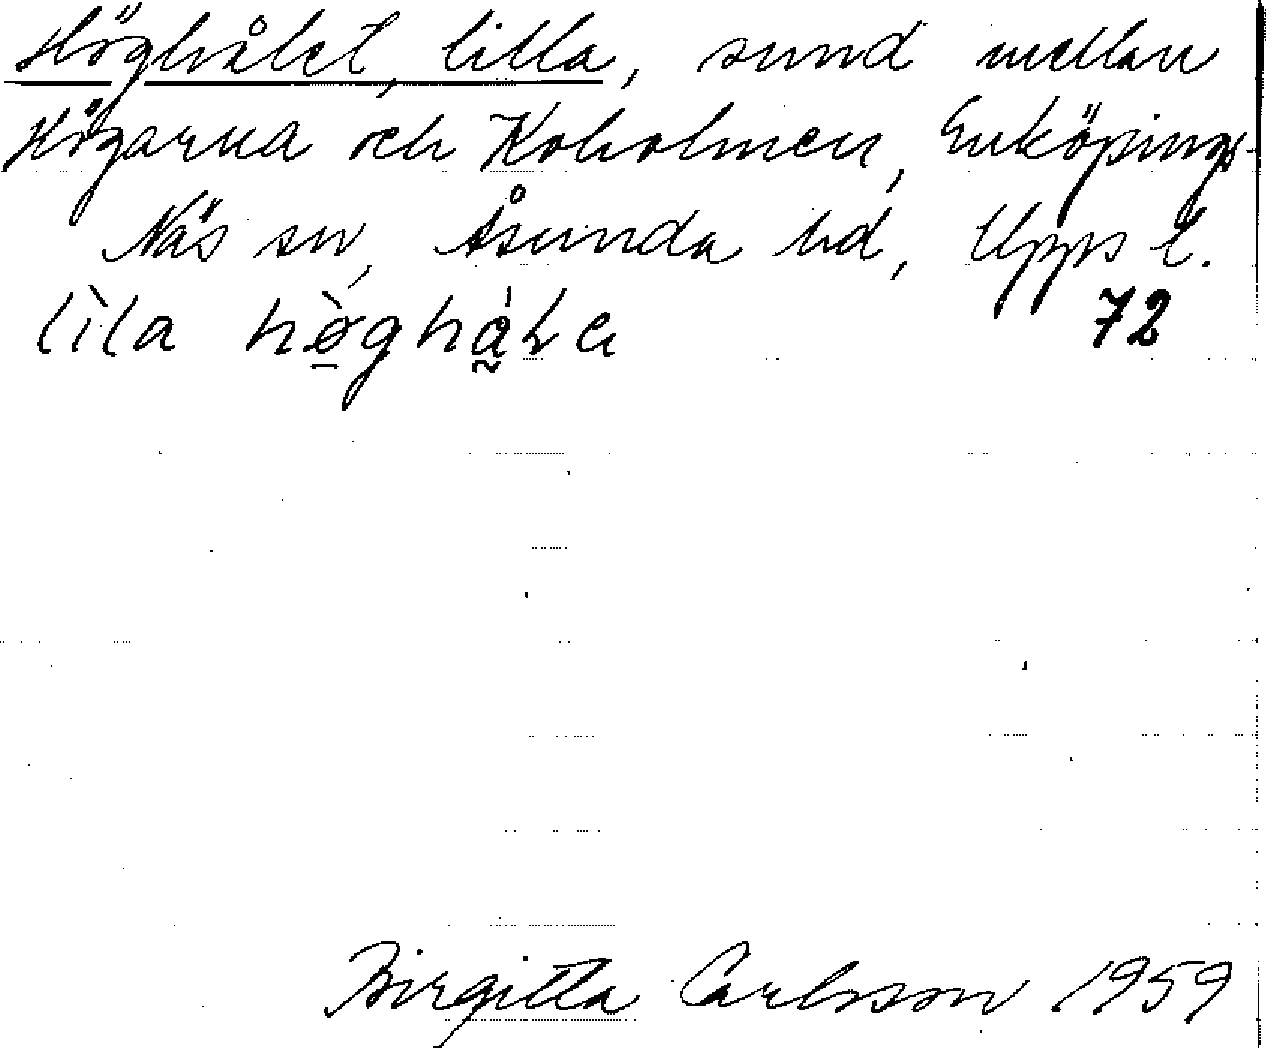 Höghålet, lilla, sund mellan
Högarna och Koholmen, Enköpings-
Näs sn, Åsunda hd, Upps l.
lìla hø̀ghå̀Lɐ 72
Birgitta Carlsson 1959